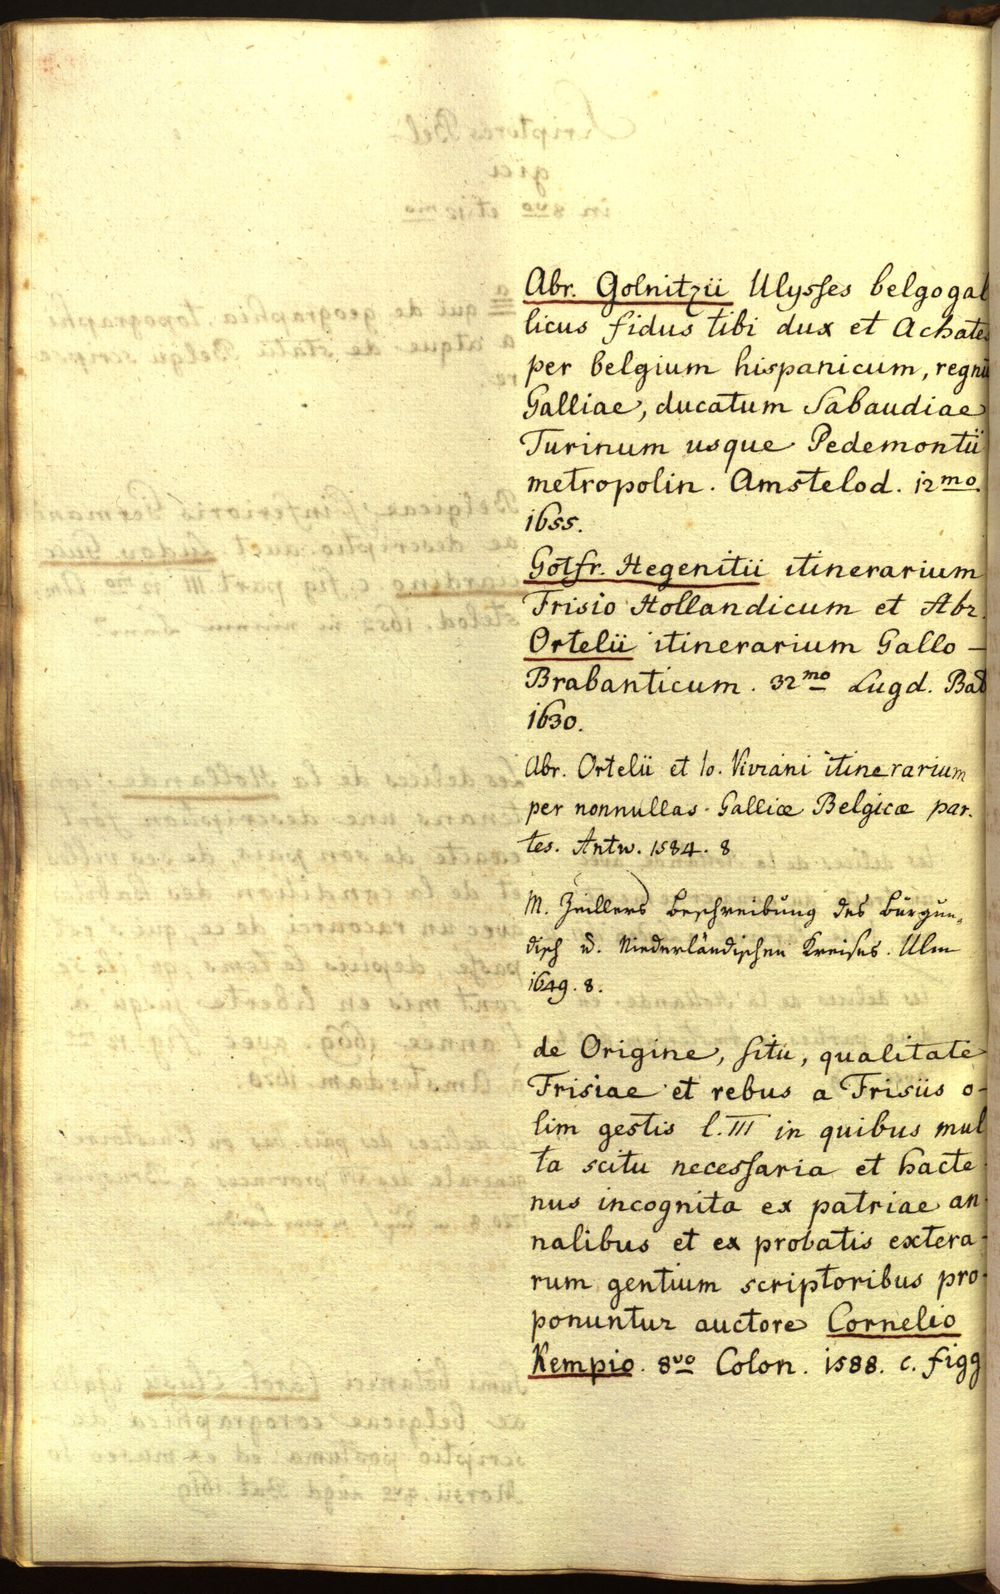 Abr. Golnitzii Ulysses belgogal
licus fidus tibi dux et Achates
per belgium hispanicum, regnū
Galliae, ducatum Sabaudiae
Turinum usque Pedemontii
metropolin. Amstelod. 12mo.
1655.
Gotfr. Hegenitii itinerarium
Frisio Hollandicum et Abr.
Ortelii itinerarium Gallo -
Brabanticum. 32mo Lugd. Bat
1630.
Abr. Ortelii et Io. Viviani itinerarium
per nonnullas Galliæ Belgicæ par.
tes. Antw. 1584. 8
M. Zeillers Beschreibung des Burgun„
disch u. Niederländischen Kreises. Ulm
1649. 8.
de Origine, situ, qualitate
Frisiae et rebus a Frisiis o-
lim gestis l. III in quibus mul
ta scitu necessaria et hacte-
nus incognita ex patriae an-
nalibus et ex probatis extera-
rum gentium scriptoribus pro-
ponuntur auctore Cornelio
Kempio. 8vo Colon. 1588. c. figg